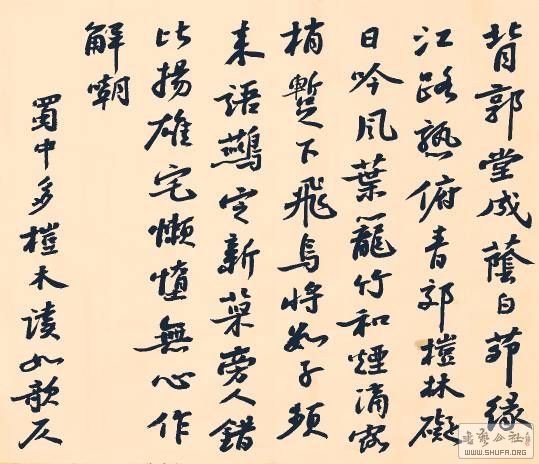 背郭堂成蔭白茆緣
江路熟俯青郊榿林礙
日吟風葉籠竹和煙滴露
梢蹔下飛烏將數子頻
來語鷰定新巢旁人錯
比揚雄宅懶惰無心作
解嘲
蜀中多榿木讀如欹仄
书艺公社
WWW.SHUFA.ORG